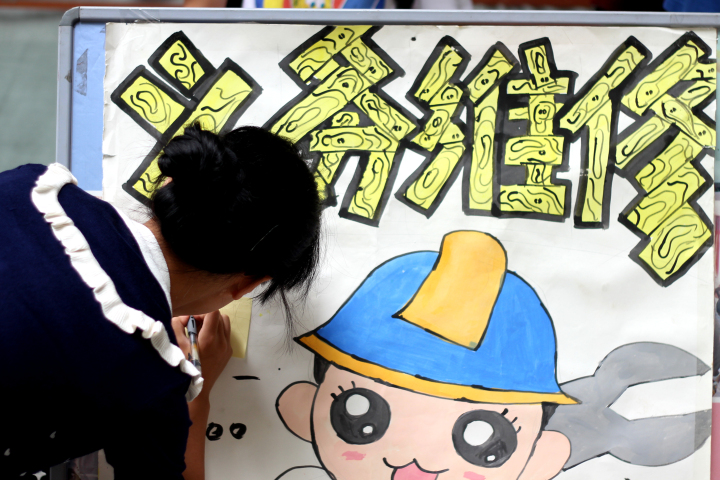 义务维修